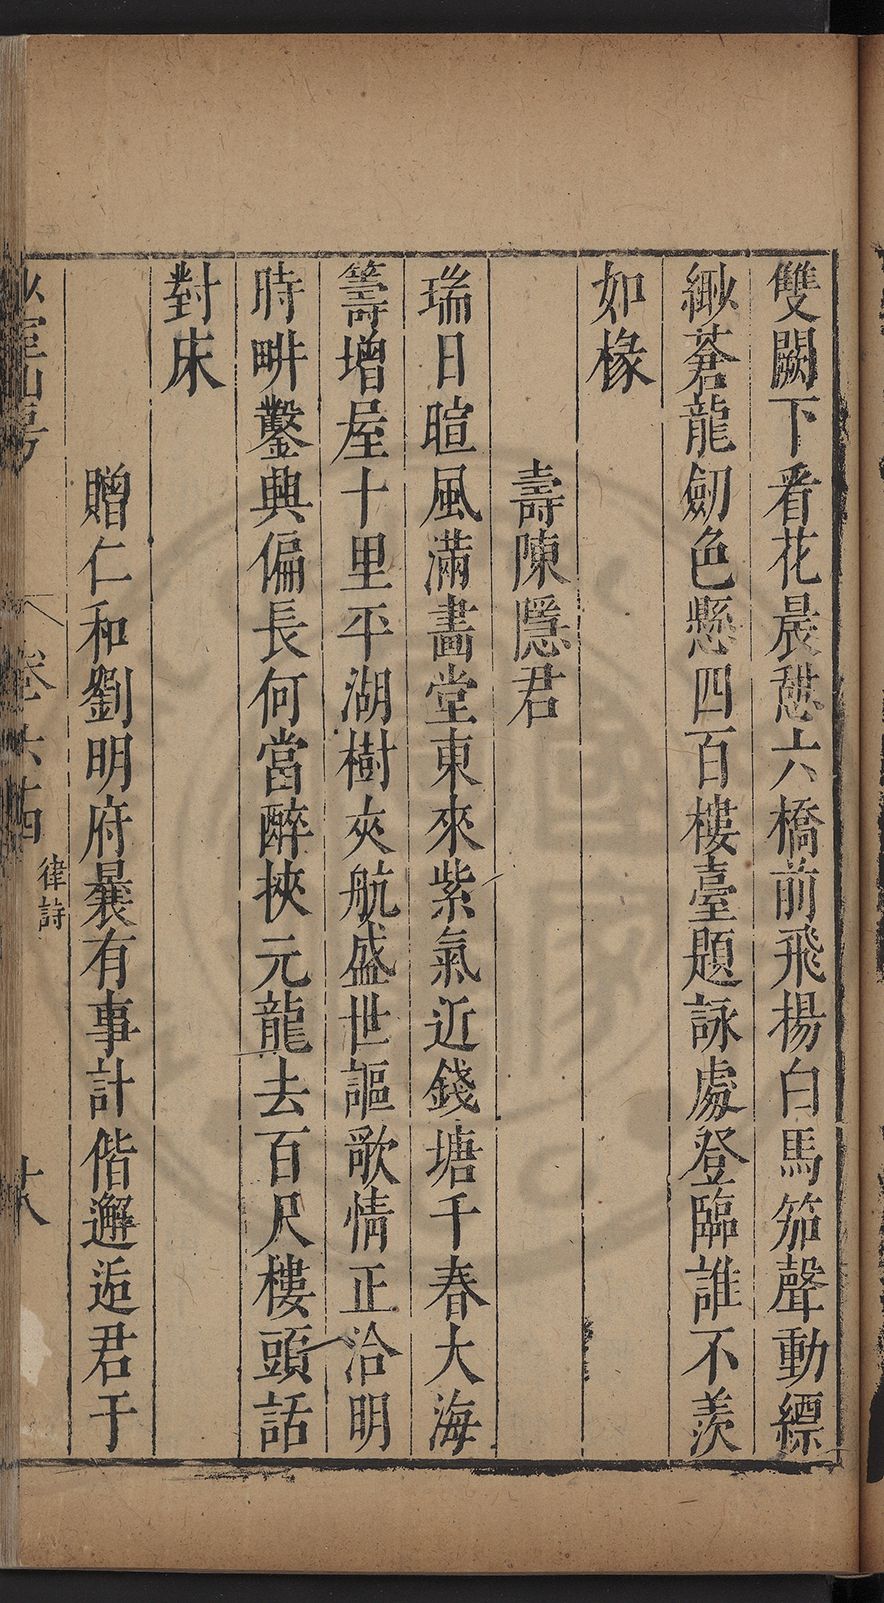 雙闕下看花晨憩六橋前飛揚白馬笳聲動縹
緲蒼龍劒色懸四百樓臺題詠處登臨誰不羨
如椽
壽陳隱君
瑞日暄風滿畵堂東來紫氣近錢塘千春大海
籌增屋十里平湖樹夾航盛世謳歌情正洽明
時畊鑿興偏長何當醉挾元龍去百尺樓頭話
對床
贈仁和劉明府曩有事計偕邂逅君于
卷六十
律詩